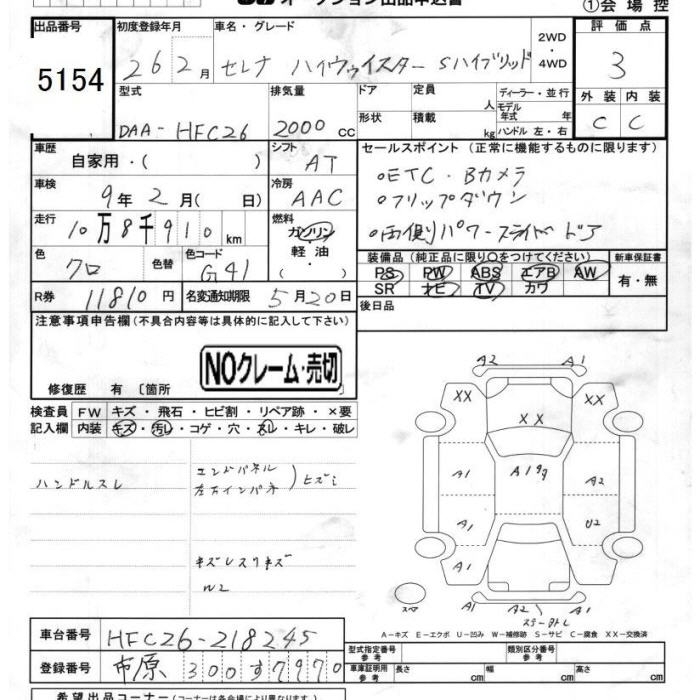 オークション出品申込書
①会 場 控
出品番号 5154
初度登録年月 26 2月
車名・グレード セレナ ハイウェイスター Sハイブリッド
2WD・4WD
評価点 3
外装 内装
C C
型式 DAA-HFC26
排気量 2000 cc
ドア
形状
定員 人
積載 kg
ディーラー・並行
モデル年式 年
ハンドル 左・右
車歴 自家用・( )
シフト AT
車検 9年 2月 ( 日)
冷房 AAC
走行 10万8千910 km
燃料 ガソリン・軽油・( )
色 クロ 色替
色コード G41
R券 11810円
名変通知期限 5月20日
セールスポイント (正常に機能するものに限ります)
○ETC・Bカメラ
○フリップダウン
○両側パワースライドドア
装備品(純正品に限り○をつけてください)
PS PW ABS エアB AW
SR ナビ TV カワ
新車保証書 有・無
後日品
注意事項申告欄(不具合内容等は具体的に記入して下さい)
NOクレーム・売切
修復歴 有〔箇所
検査員記入欄
FW キズ・飛石・ヒビ割・リペア跡・×要
内装 キズ・汚レ・コゲ・穴・スレ・キレ・破レ
ハンドルスレ
エンドパネル
左右インパネ
キズレスリキズ
W2
A2 A1
XX XX XX
A1 A199 A2
A1 U2
A1 A1
スペア
A1 A2 A1
A-キズ E-エクボ U-凹み W-補修跡 S-サビ C-腐食 XX-交換済
車台番号 HFC26-218245
登録番号 市原 300 す 7970
型式指定番号 参考
類別区分番号 参考
車庫証明用 参考 長さ cm 幅 cm 高さ cm
希望出品コーナー(コーナーは各会場により異なります)